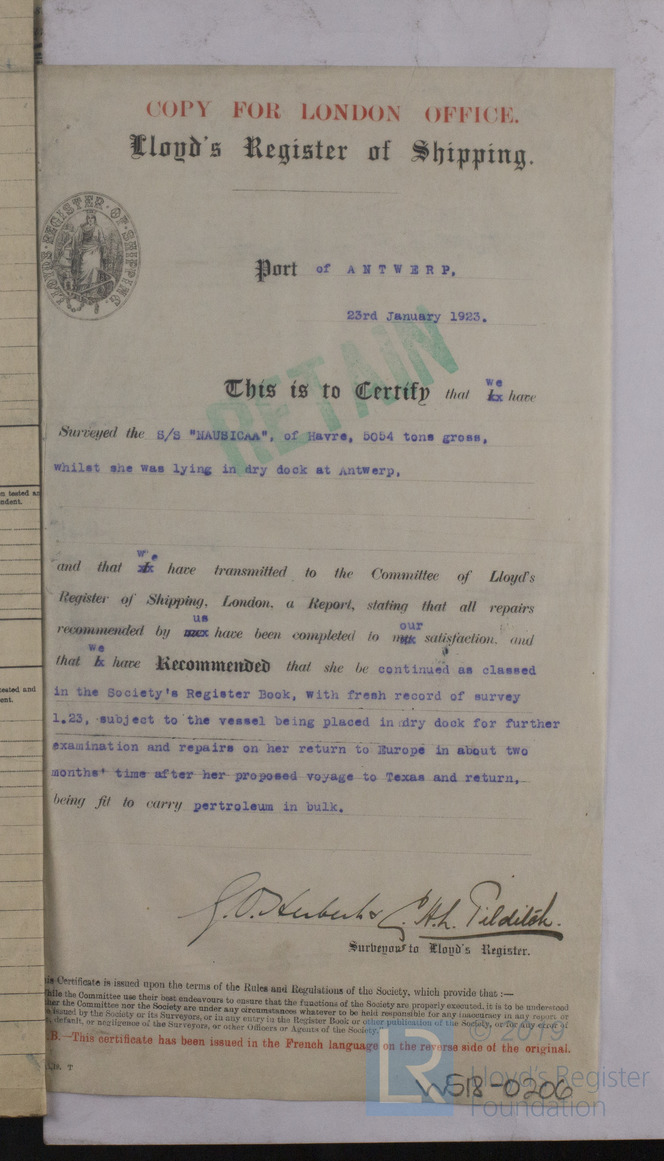 COPY FOR LONDON OFFICE.
Lloyd's Register of Shipping.
LLOYD'S REGISTER OF SHIPPING
Port of ANTWERP,
23rd January 1923.
RETAIN
we
This is to Certify that have
Surveyed the S/S "NAUSICAA", of Havre, 5054 tons gross,
whilst she was lying in dry dock at Antwerp,
we
and that have transmitted to the Committee of Lloyd's
Register of Shipping, London, a Report, stating that all repairs
us our
recommended by have been completed to satisfaction, and
we
that have Recommended that she be continued as classed
in the Society's Register Book, with fresh record of survey
1.23, subject to the vessel being placed in dry dock for further
examination and repairs on her return to Europe in about two
months' time after her proposed voyage to Texas and return,
being fit to carry pertroleum in bulk.
G.O. Herbert & C.H.L. Tilditch.
Surveyors to Lloyd's Register.
Certificate is issued upon the terms of the Rules and Regulations of the Society, which provide that :—
the Committee use their best endeavours to ensure that the functions of the Society are properly executed, it is to be understood
the Committee nor the Society are under any circumstances whatever to be held responsible for any inaccuracy in any report or
issued by the Society or its Surveyors, or in any entry in the Register Book or other publication of the Society, or for any error of
default, or negligence of the Surveyors, or other Officers or Agents of the Society.
B.—This certificate has been issued in the French language on the reverse side of the original.
T
n tested an
ndent.
tested and
ent.
W518-0206
LR
© 2019
Lloyd's Register
Foundation